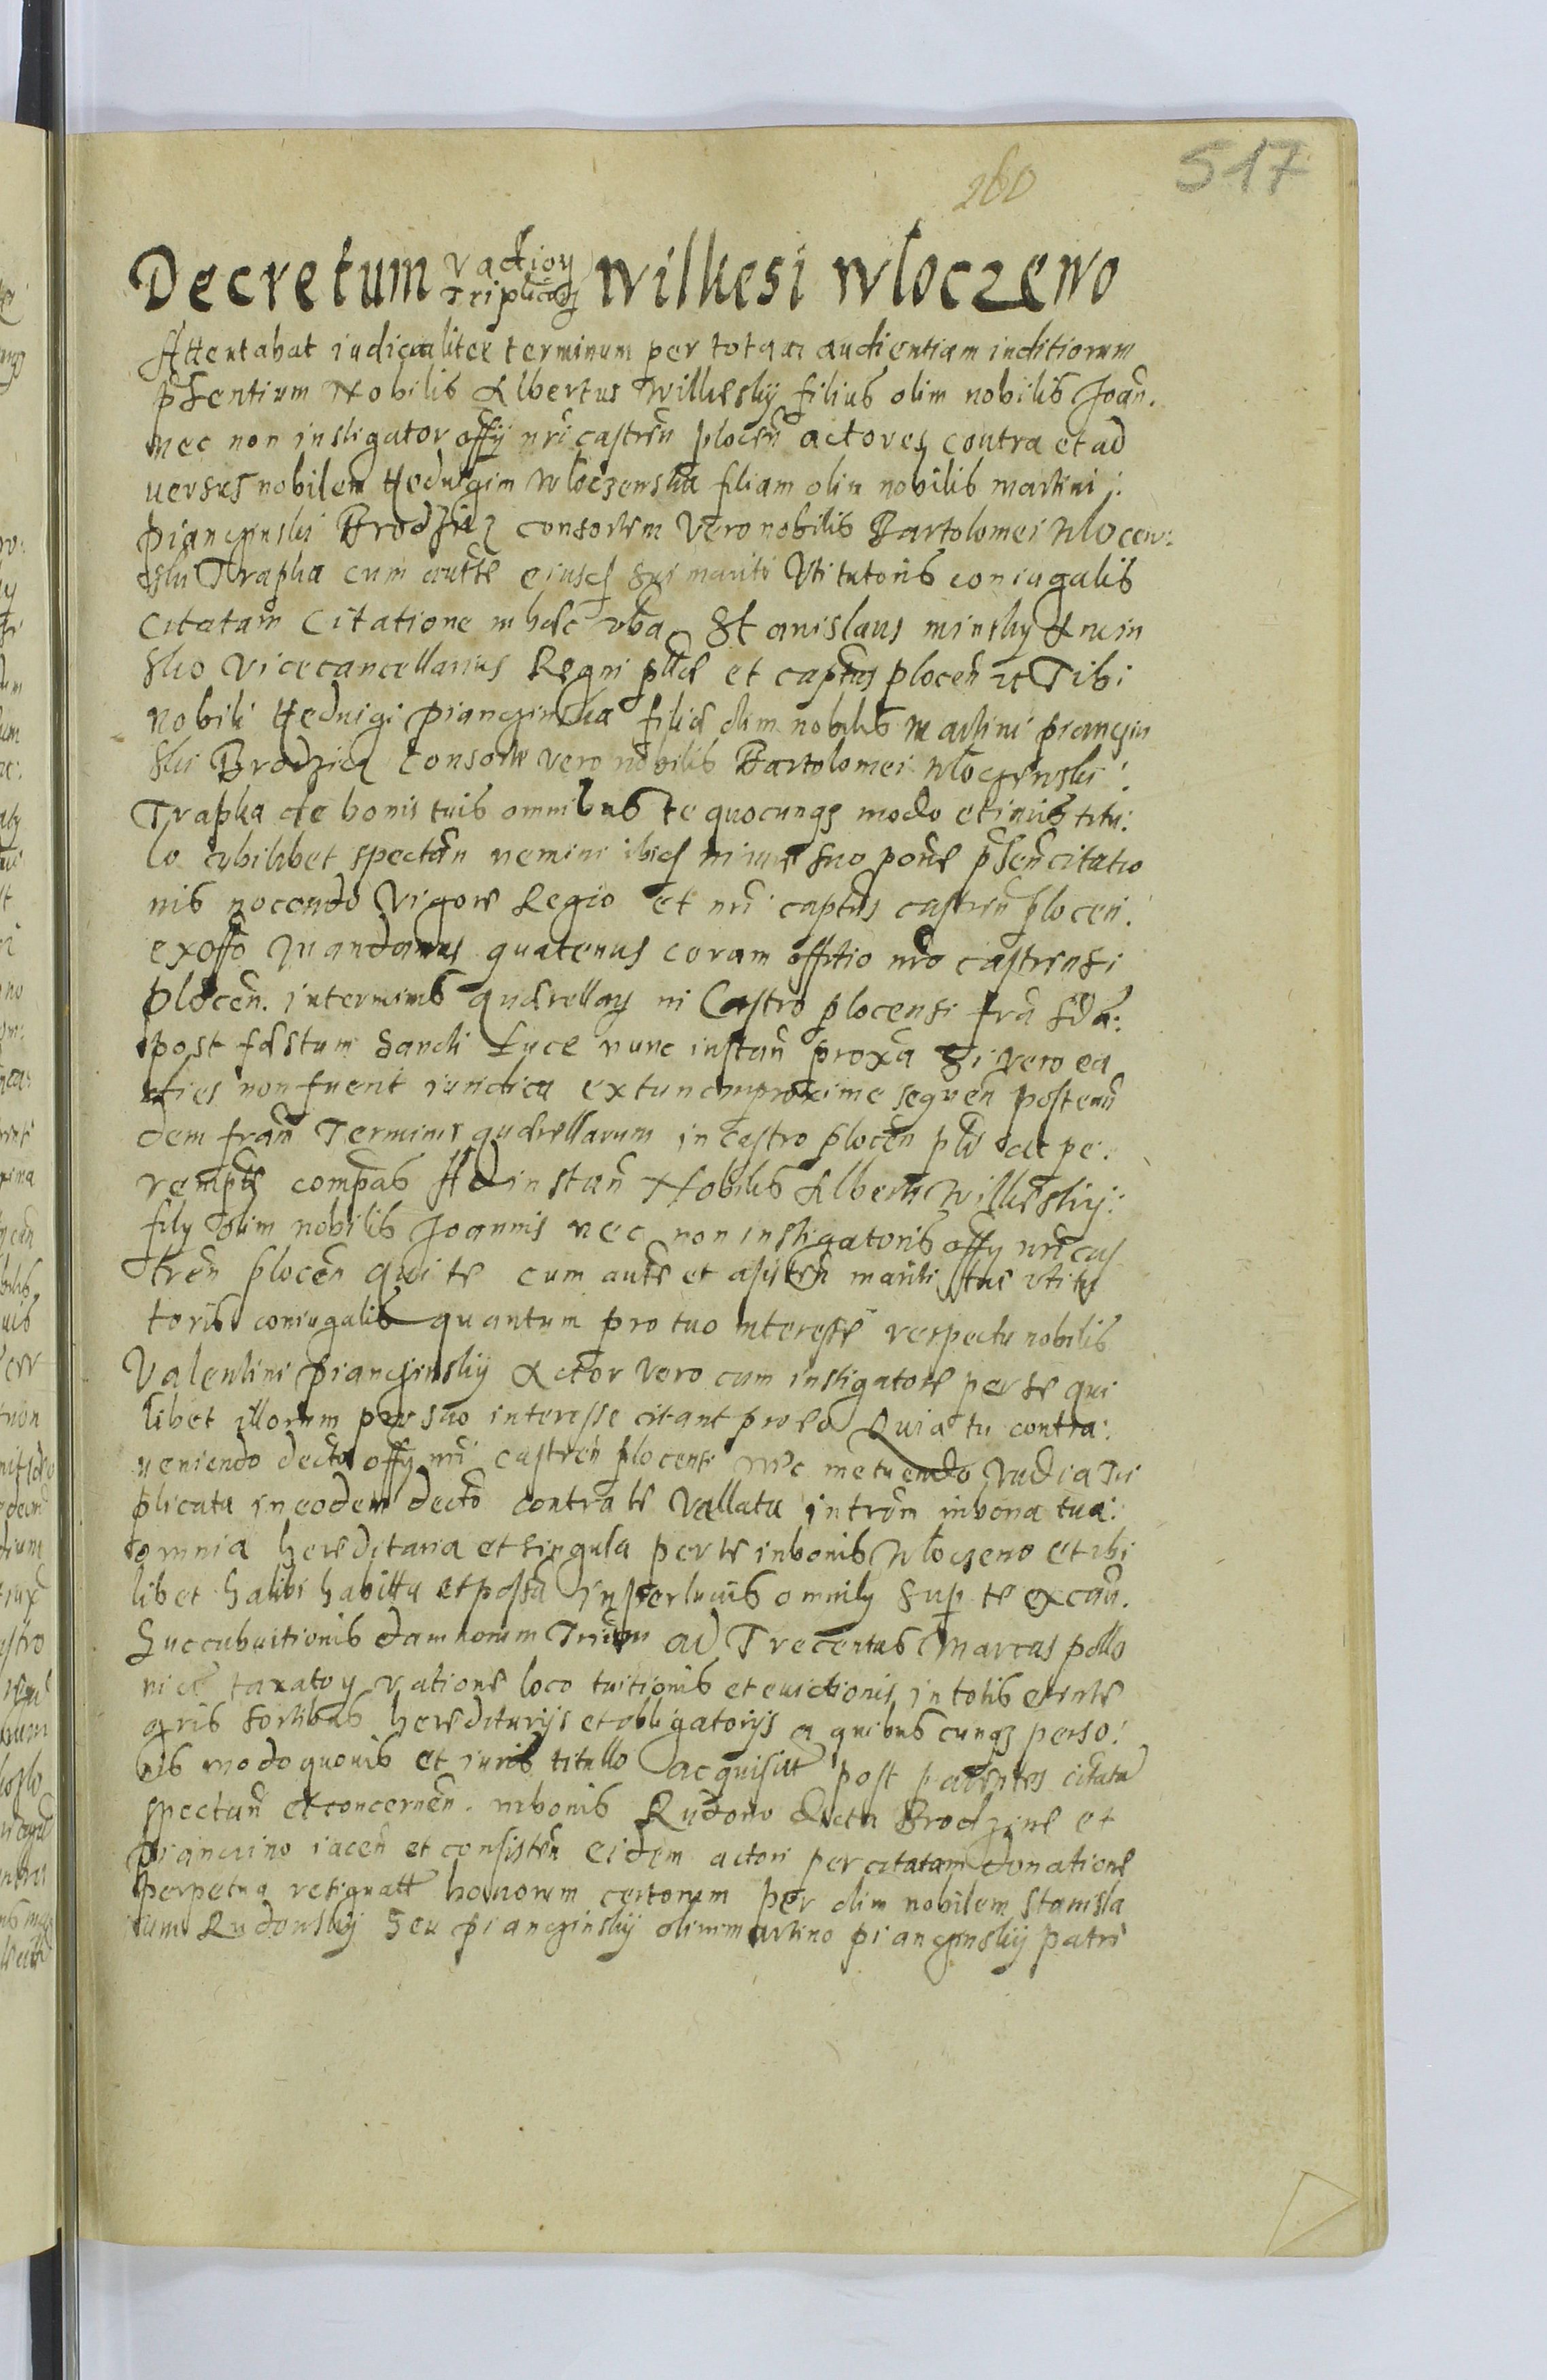 517
260
Decretum vadior Triplicar Wilkesi Wloczewo
Attentabat iudicialiter terminum per totam audientiam inditiorum
pntentium Nobilis Albertus Wilkesky filius olim nobilis Joan.
nec non instigator offy nri castren plocen actores contra et ad
versus nobilem Heduigim Wloczewska filiam olim nobilis martini:
pianczinski Brodzicz consortem vero nobilis Bartolomei Wlocew:
ski Trapka cum autte eiusdem sui mariti Uti tutoris coniugalis
Citatam Citatione in hec vba Stanislaus minsky de min
sko Vicecancellarius Regni plle et captus plocen etc Tibi
nobili Heduigi pianczinska filia olim nobilis martini pianczin
ski Brodzicz consorti vero nobilis Bartolomei Wloczewski:
Trapka de bonis tuis omnibus te quocunqz modo et iuris titu:
lo cubilibet spectan nemini ibidem in iure suo pone psen citatio
nis nocendo Vigore Regio et nri captus castren plocen:
exoffo mandamus quatenus coram offitio nro castrensi
plocen. in terminis querellarum in Castro plocensi fra sda:
post festum Sancti Luce nunc instan proxa Si vero ea
dies non fuerit iuridica extunc in proxime sequen post eun
dem fram Terminis querellarum in castro plocen plis ac pe:
rempte compas Ad instan Nobilis Alberti Wilkesky:
fily olim nobilis Joannis nec non instigatoris offy nri cas
tren plocen Qui te cum autte et assisten mariti tui uti tu
toris coniugalis quantum pro tuo interesse respectu nobilis
Valentini pianczinsky Actor vero cum instigatore per se qui
libet illorum pro suo interesse citant pro eo Quia tu contra:
veniendo decto offy nri castren plocensi nec metuendo Vadia Tri
plicata in eodem decto contra te Vallata introm in bona tua:
omnia hereditaria et singula per te in bonis Wloczewo et ubi
libet halibi habitta et possa super te ex cau.
Succubuitionis damnorum Trium ad Trecentas Marcas pollo
nice taxator ratione loco tuitionis et euictionis in totis et inte
gris sortibus hereditarijs et obligatorijs a quibus cunqz perso:
nis modo quouis et iuris titullo acquisit post parentes citata
spectan et concernen. in bonis Rudowo dicta Brodzice et
pianczino iacen et consisten eidem actori per citatam donatione
perpetua resignatt bonorum certorum per olim nobilem Stanisla
um Rudowsky seu pianczinsky olim martino pianczinsky patri